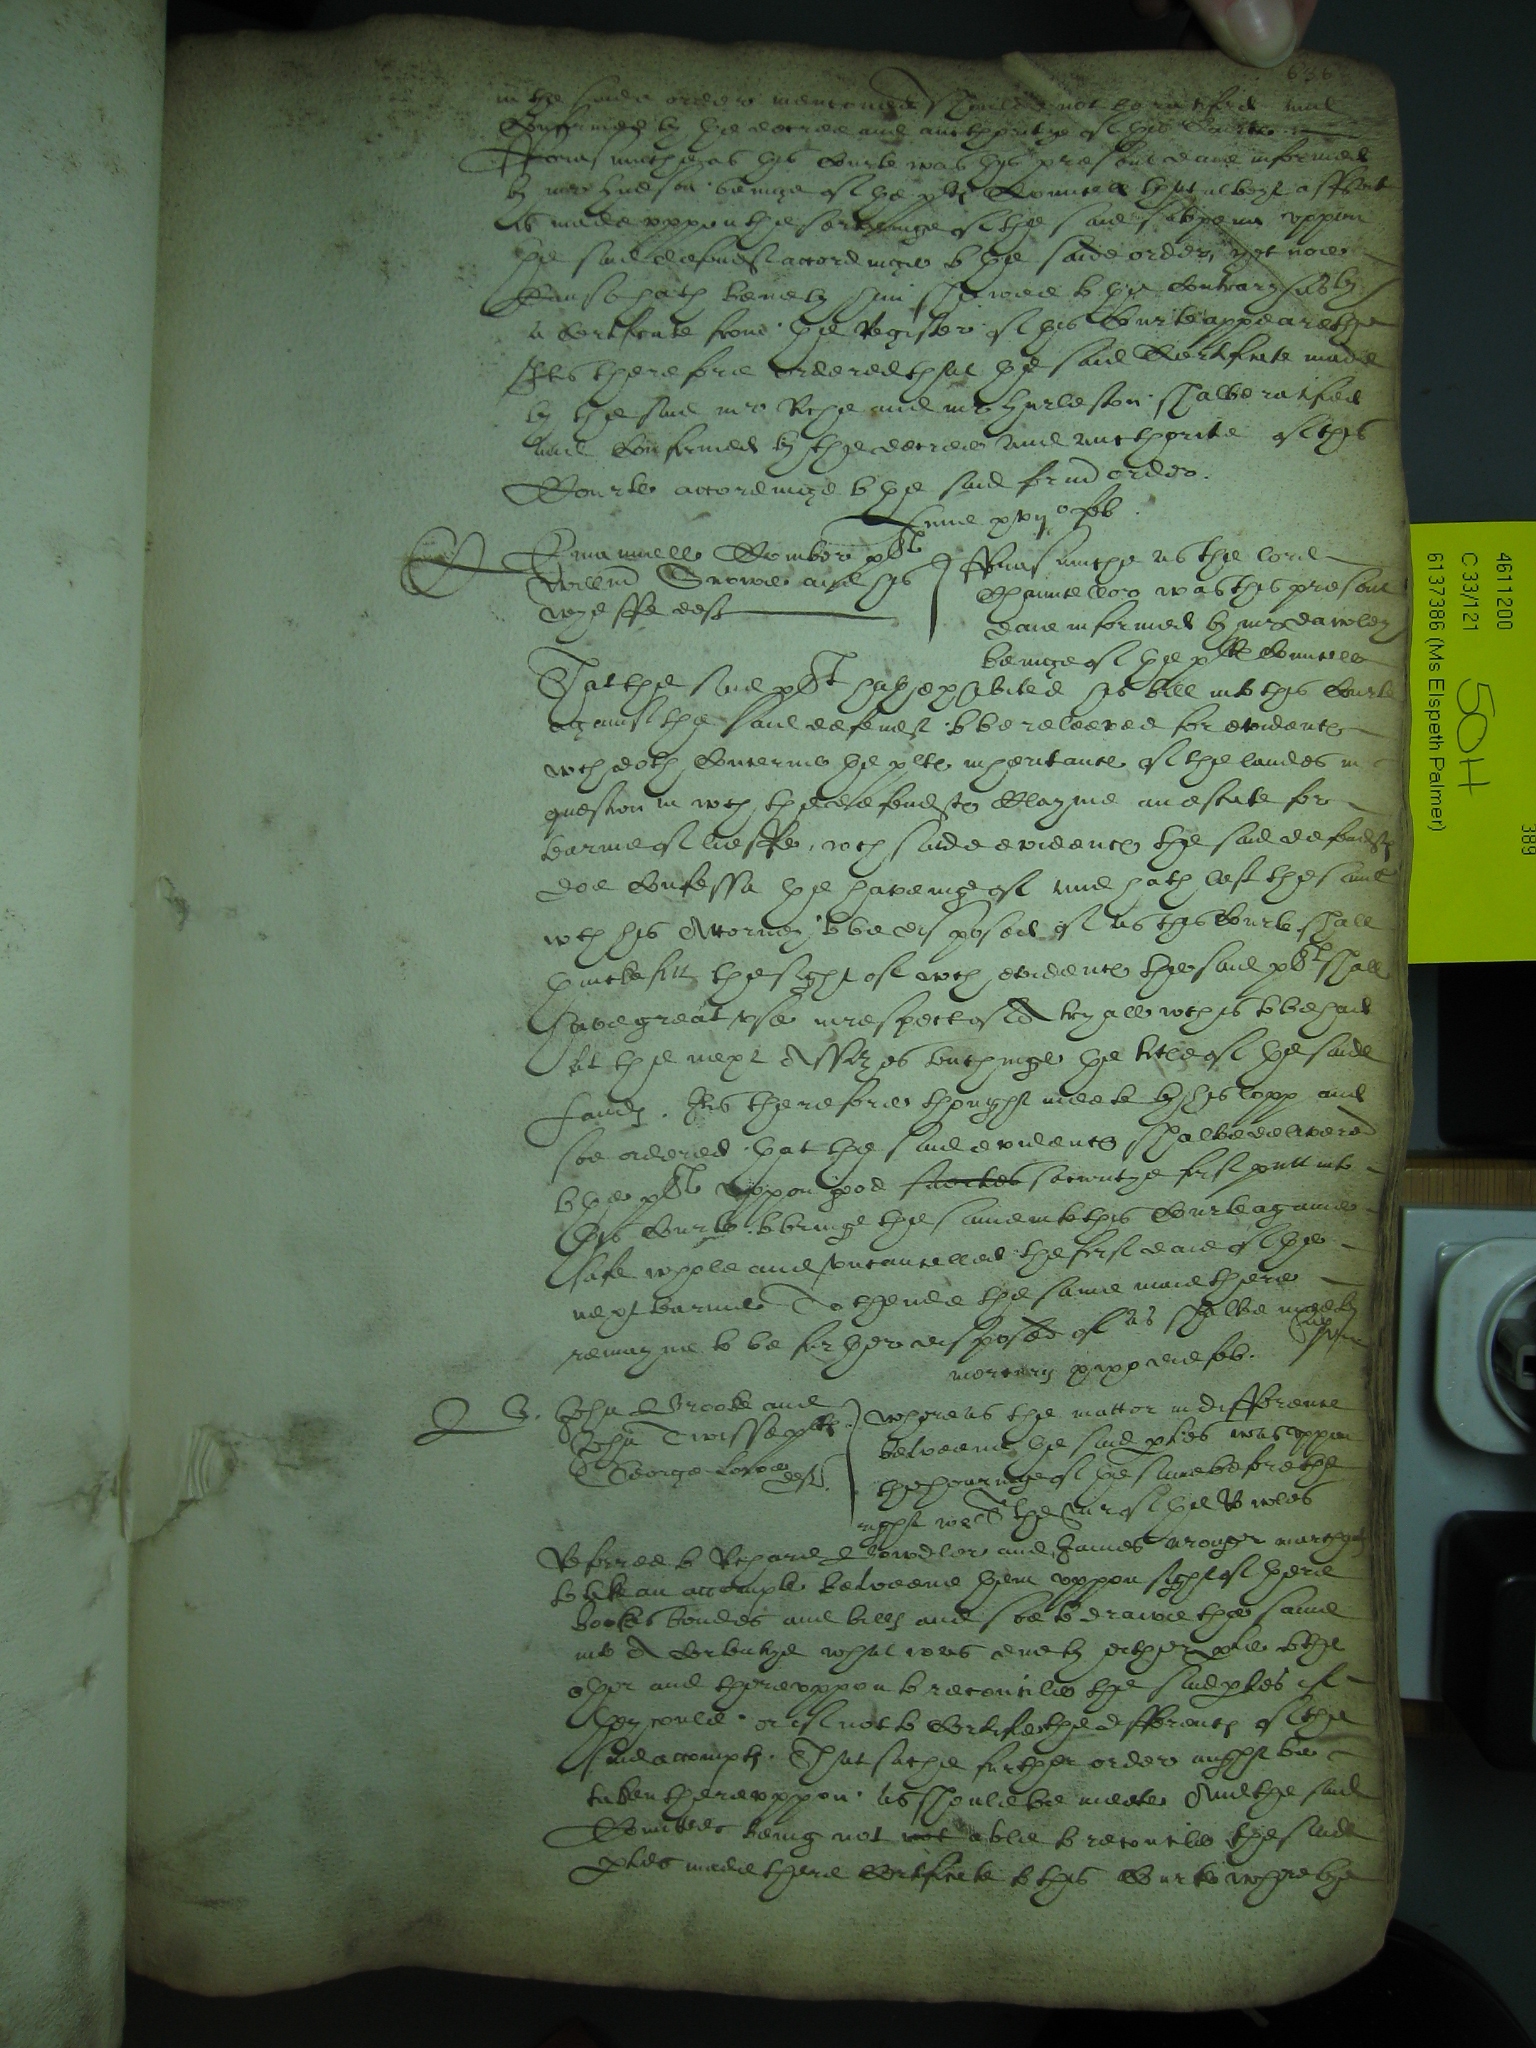 636
in the saide order mencioned should not be ratified and
Confirmed by the decree and aucthoritye of this Courte
Fforasmuch as this Courte was this present daie informed
by mr hudson beinge of the pltes Councell that albeyt affidt
is made uppon the servinge of the said subpena uppon
the said defendt accordinge to the saide order, yet noe
Cause hath bene by him shewed to the Contrary as by
a Certificate from the Register of this Courte appearethe
It is therefore ordered that the said Certificate made
by the said mr Riche and mr hurleston shalbe ratified
and Confirmed by the decree and aucthoritie of this
Courte accordinge to the said former order.
Lune xvij o feb
Emanuell Comber plt
Willm Snowe and his
wyeffe deft
Fforasmuche as the lord
Chauncellor was this present
daie informed by mr dawley
beinge of the plts Councell
That the said plt hath exhibited his bill into this Courte
against the said defendt to be releeved for evidence
wch doth Concerne the pltes inheritance of the landes in
question in wch the defendts Clayme an estate for
tearme of lieffe, wch saide evidence the said defendts
doe Confesse the haveinge of and hath left the same
wth his Attorney to be disposed of as this Courte shall
thincke fitt the sight of wch evidence the said plt shall
have great use in respect of A tryall wch is to be had
at the next Assizes touchinge the title of the saide
Lands. It is therefore thought meete by his lopp and
soe ordered that the said evidence shalbe delivered
to the plt uppon good securitye first putt into
this Courte to bringe the same into this Courte againe
safe whole and uncancelled the first daie of the
next tearme To thende the same maie there
remayne to be further disposed of as shalbe meete
mercurij xixo die feb.
B. John Brooke and
John Twisse plts
George Lowe deft
Whereas the matter in difference
betweene the said pties was uppon
the hearinge of the same before the
right wor the Mr of the Rowles
Referred to Richard Bowdler and James wronger marchants
to take an accompte betweene them uppon sight of there
bookes bondes and bills and soe to drawe the same
into A Certentye what was due by either ptie to the
other and thereuppon to reconcile the said pties if
they could or if not to Certifie the difference of the
said accompts. That suche further order might be
taken thereuppon as should be meete And the said
Comittees being not not able to reconcile the said
pties made there Certificate to this Courte whereby
4611200
C 33/121
6137386 (Ms Elspeth Palmer)
50H
389